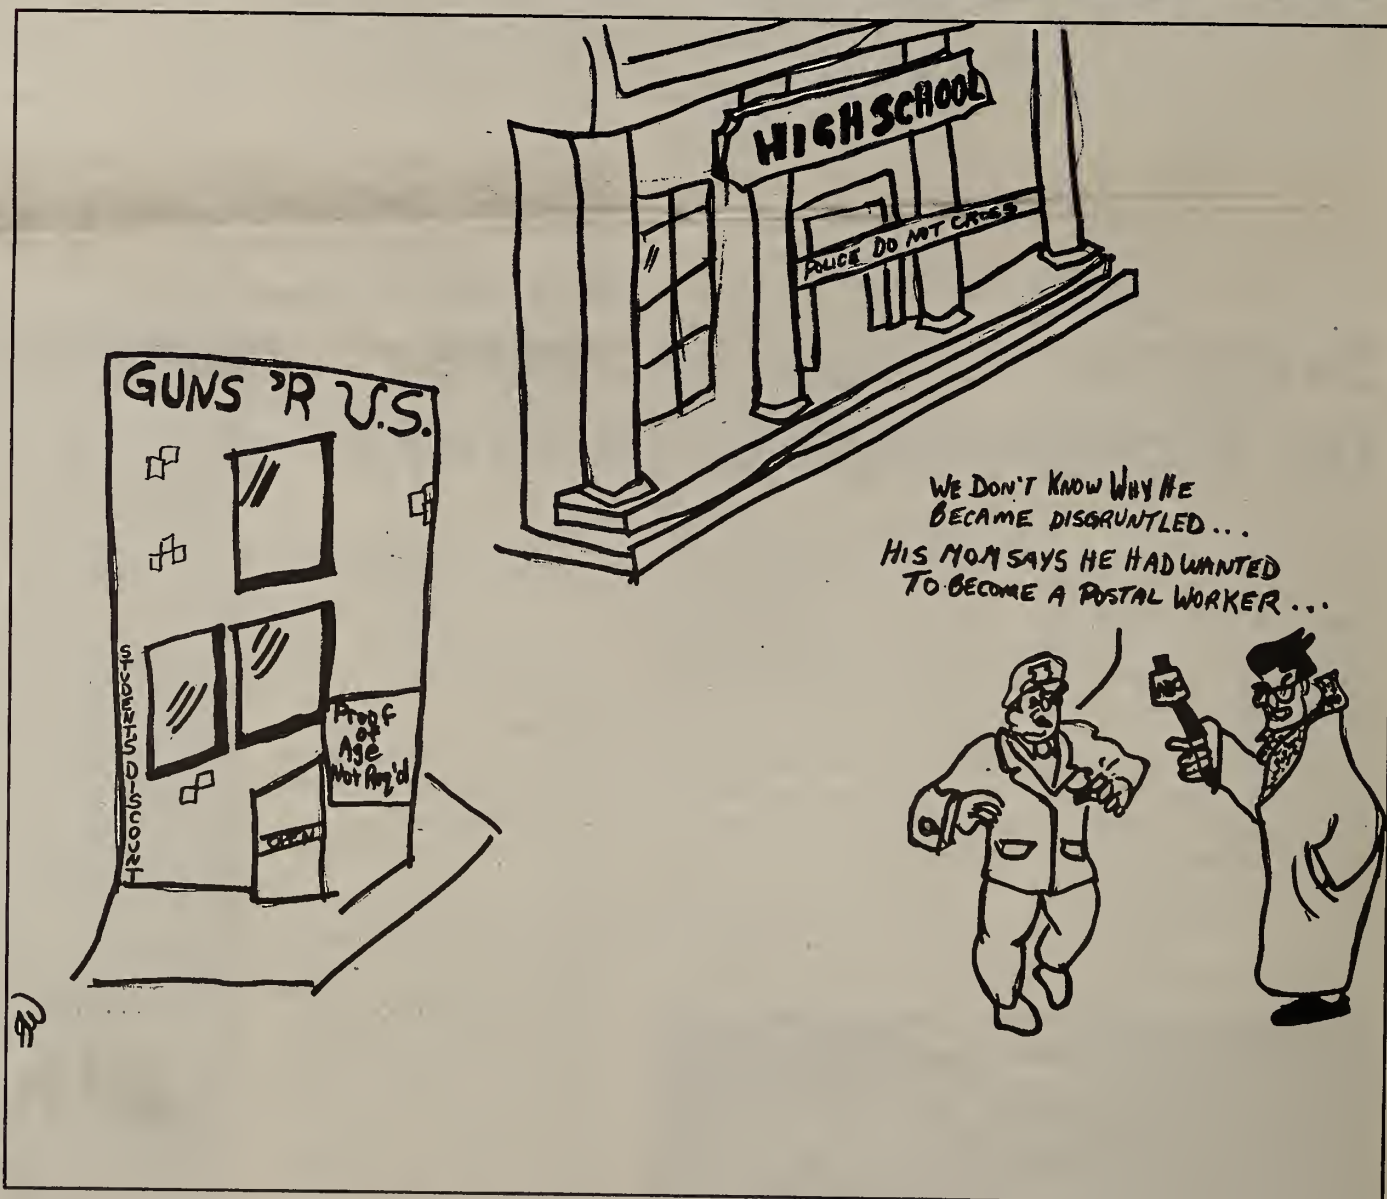 HIGH SCHOOL
POLICE DO NOT CROSS
GUNS 'R U.S.
STUDENTS DISCOUNT
Proof
of
Age
Not Req'd
OPEN
WE DON'T KNOW WHY HE
BECAME DISGRUNTLED...
HIS MOM SAYS HE HAD WANTED
TO BECOME A POSTAL WORKER...